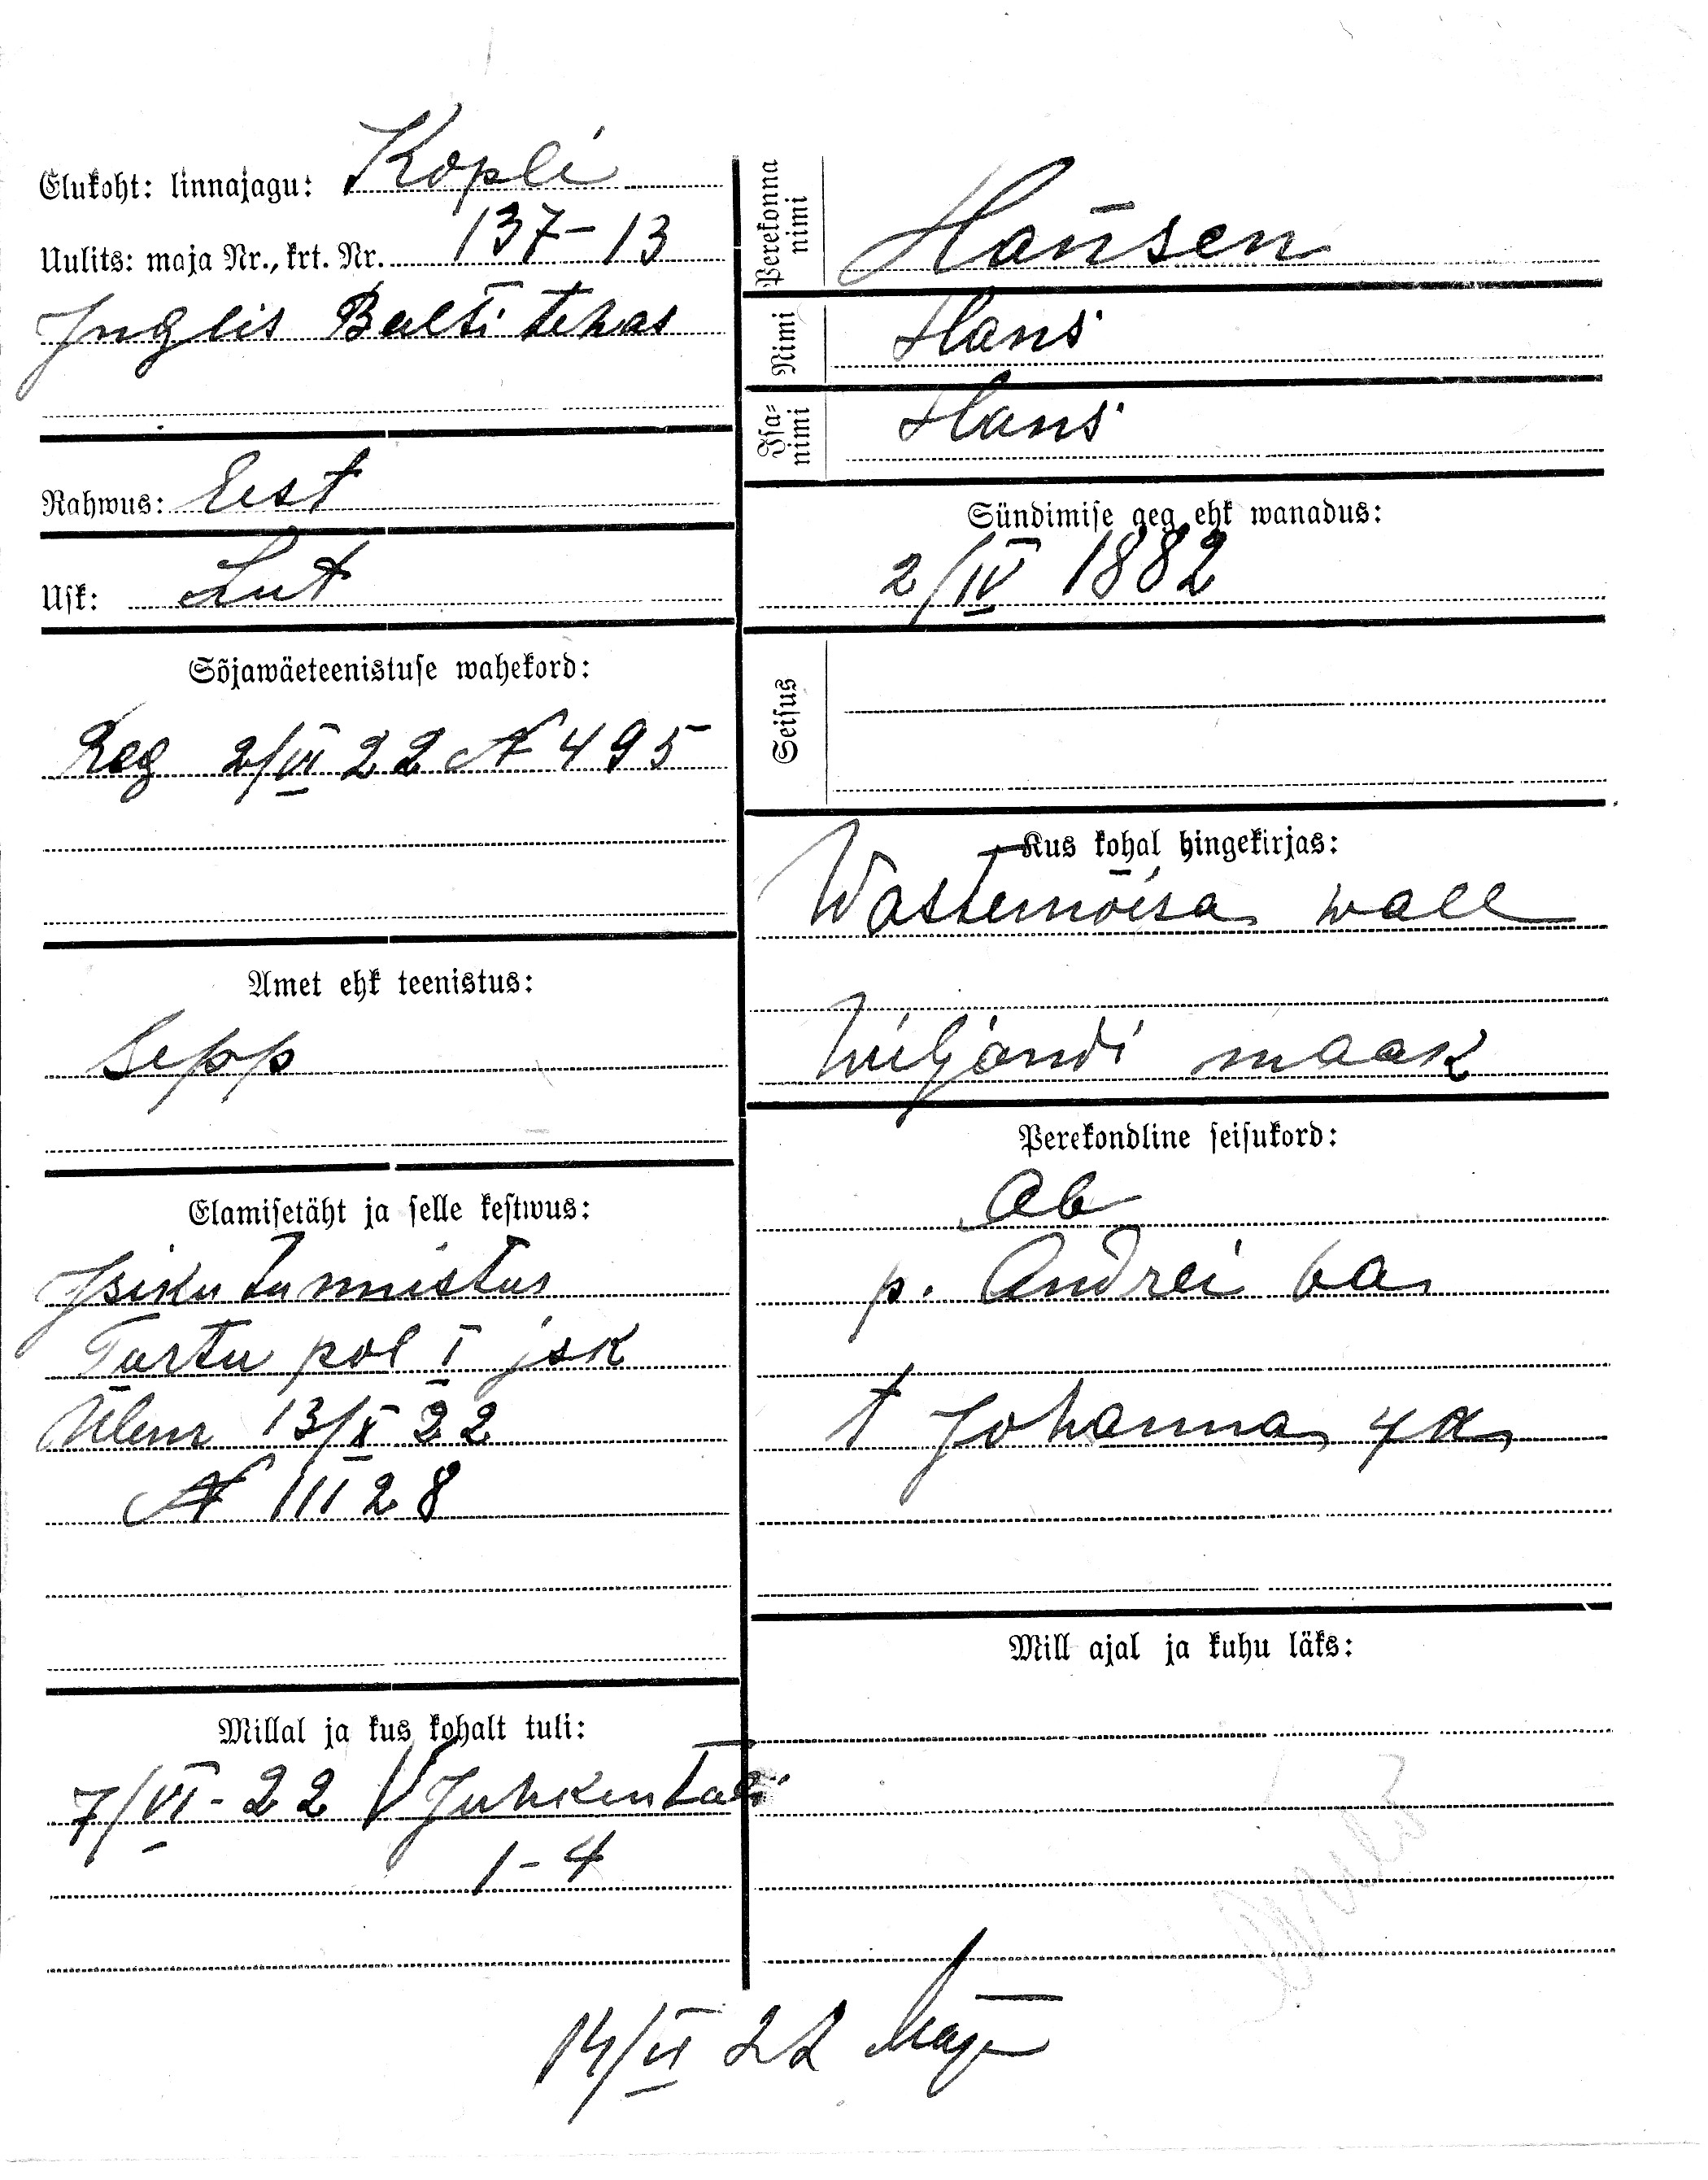 Elukoht: linnajagu: Kopli
Uulits: maja Nr., krt. Nr. 137-13
Inglis Balti tehas
Rahwus: Eest
Usk: Lut
Sõjawäeteenistuse wahekord:
Reg 2/VI 22 N 495
Amet ehk teenistus:
Sepp
Elamisetäht ja selle kestwus:
Isikutunnistus
Tartu pol I jsk
Ülem 13/X 22
N 11128
Millal ja kus kohalt tuli:
7/VI-22 V Juhkentali
1-4
Perekonna
nimi
Hansen
Nimi
Hans
Isa-
nimi
Hans
Sündimise aeg ehk wanadus:
2/IV 1882
Seisus
Kus kohal hingekirjas:
Wastemõisa wall
Wiljandi maak
Perekondline seisukord:
Ab
p. Andrei 6 a
t Johanna 4 a
Mill ajal ja kuhu läks:
14/VI 22